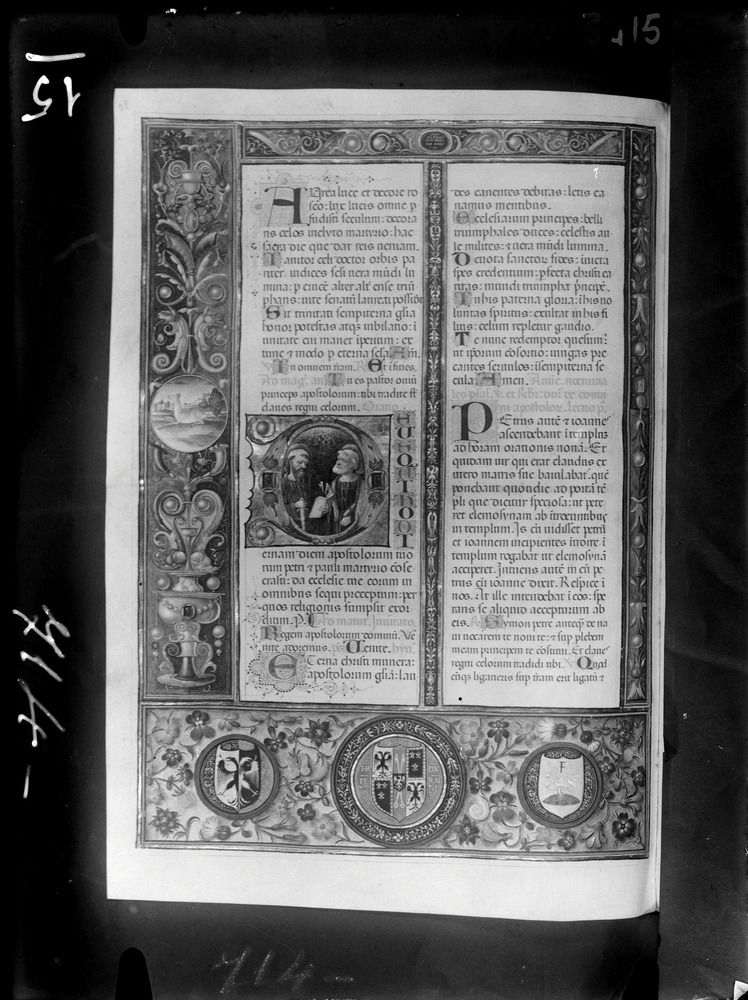 15
15
Aurea luce et decore ro
seo: lux lucis omne p
fudisti seculum: decora
ns celos inclyto martyrio: hac
sacra die que dat reis veniam.
Ianitor celi doctor orbis pa
riter. iudices secli vera mūdi lu
mina: p crucē alter alt ense triū
phans: vite senatū laureati possidēt
Sit trinitati sempiterna glīa
honor potestas atqz iubilatio: i
unitate cui manet iperium: ex
tunc ⁊ modo p eterna secla Am̄.
In omnem t̄ram. R Et in fines.
Ad mag. an Tu es pastor oviū
princeps apostolorum: tibi tradite st̄
claves regni celorum. Oratio.
DEUS QUI HODI
ernam diem apostolorum tuo
rum petri ⁊ pauli martyrio cōse
crasti: da ecclesie tue eorum in
omnibus sequi preceptum: per
quos religionis sumpsit exor
dium. P. Ad matut. Invitato.
Regem apostolorum dominū. Ve
nite adoremus. ps Venite. hyn.
Eterna christi munera:
apostolorum gliā: lau
des canentes debitas: letis ca
namus mentibus.
Ecclesiarum principes: belli
triumphales duces: celestis au
le milites: ⁊ vera mūdi lumina.
Devota sanctor fides: invicta
spes credentium: pfecta christi ca
ritas: mundi triumphat p̄ncipē.
In his paterna gloria: i his vo
luntas spiritus: exultat in his fi
lius: celum repletur gaudio.
Te nunc redemptor quesum⁹
ut ipsorum cōsortio: iungas pre
cantes servulos: i sempiterna se
cula Amen.
Petrus autē ⁊ ioannes
ascendebant i templuz
ad horam orationis nonā. Et
quidam vir qui erat claudus ex
utero matris sue baiulabat. quē
ponebant quotidie ad portā tē
pli que dicitur speciosa: ut pete
ret elemosynam ab itroeuntibus
in templum. Is cū vidisset petrū
et ioannem incipientes itroire i
templum rogabat ut elemosynā
acciperet. Intuens autē in eū pe
trus cū ioanne dixit. Respice i
nos. At ille intendebat i eos: spe
rans se aliquid accepturum ab
eis. R Symon petre anteqz de na
vi vocarem te novi te: ⁊ sup plebem
meam principem te cōstitui. Et claves
regni celorum tradidi tibi. V Quod
cūqz ligaveris sup terram erit ligatū ⁊
F
714-
714-